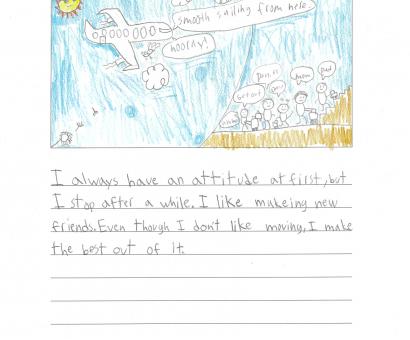 smooth sailing from here.
hooray!
mom
dad
I always have an attitude at first, but
I stop after a while. I like makeing new
friends. Even though I don't like moving, I make
the best out of it.